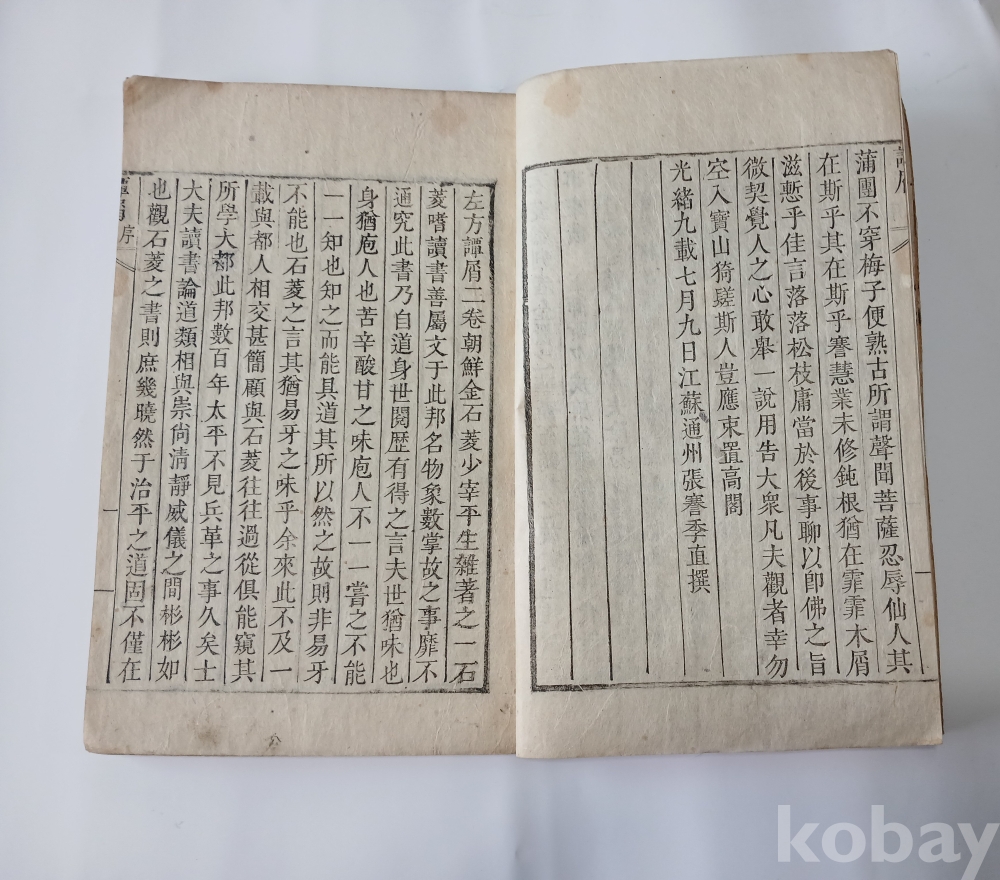 蒲團不穿梅子便熟古所謂聲聞菩薩忍辱仙人其
在斯乎其在斯乎謇慧業未修鈍根猶在霏霏木屑
滋慙乎佳言落落松枝庸當於後事聊以卽佛之旨
微契覺人之心敢舉一說用告大衆凡夫觀者幸勿
空入寶山猗蹉斯人豈應束置高閣
光緒九載七月九日江蘇通州張謇季直撰
左方譚屑二卷朝鮮金石菱少宰平生雜著之一石
菱嗜讀書善屬文于此邦名物象數掌故之事靡不
通究此書乃自道身世閱歷有得之言夫世猶味也
身猶庖人也苦辛酸甘之味庖人不一一嘗之不能
一一知也知之而能具道其所以然之故則非易牙
不能也石菱之言其猶易牙之味乎余來此不及一
載與都人相交甚簡顧與石菱往往過從俱能窺其
所學大都此邦數百年太平不見兵革之事久矣士
大夫讀書論道類相與崇尙淸靜威儀之間彬彬如
也觀石菱之書則庶幾曉然于治平之道固不僅在
譚屑 序
一
kobay